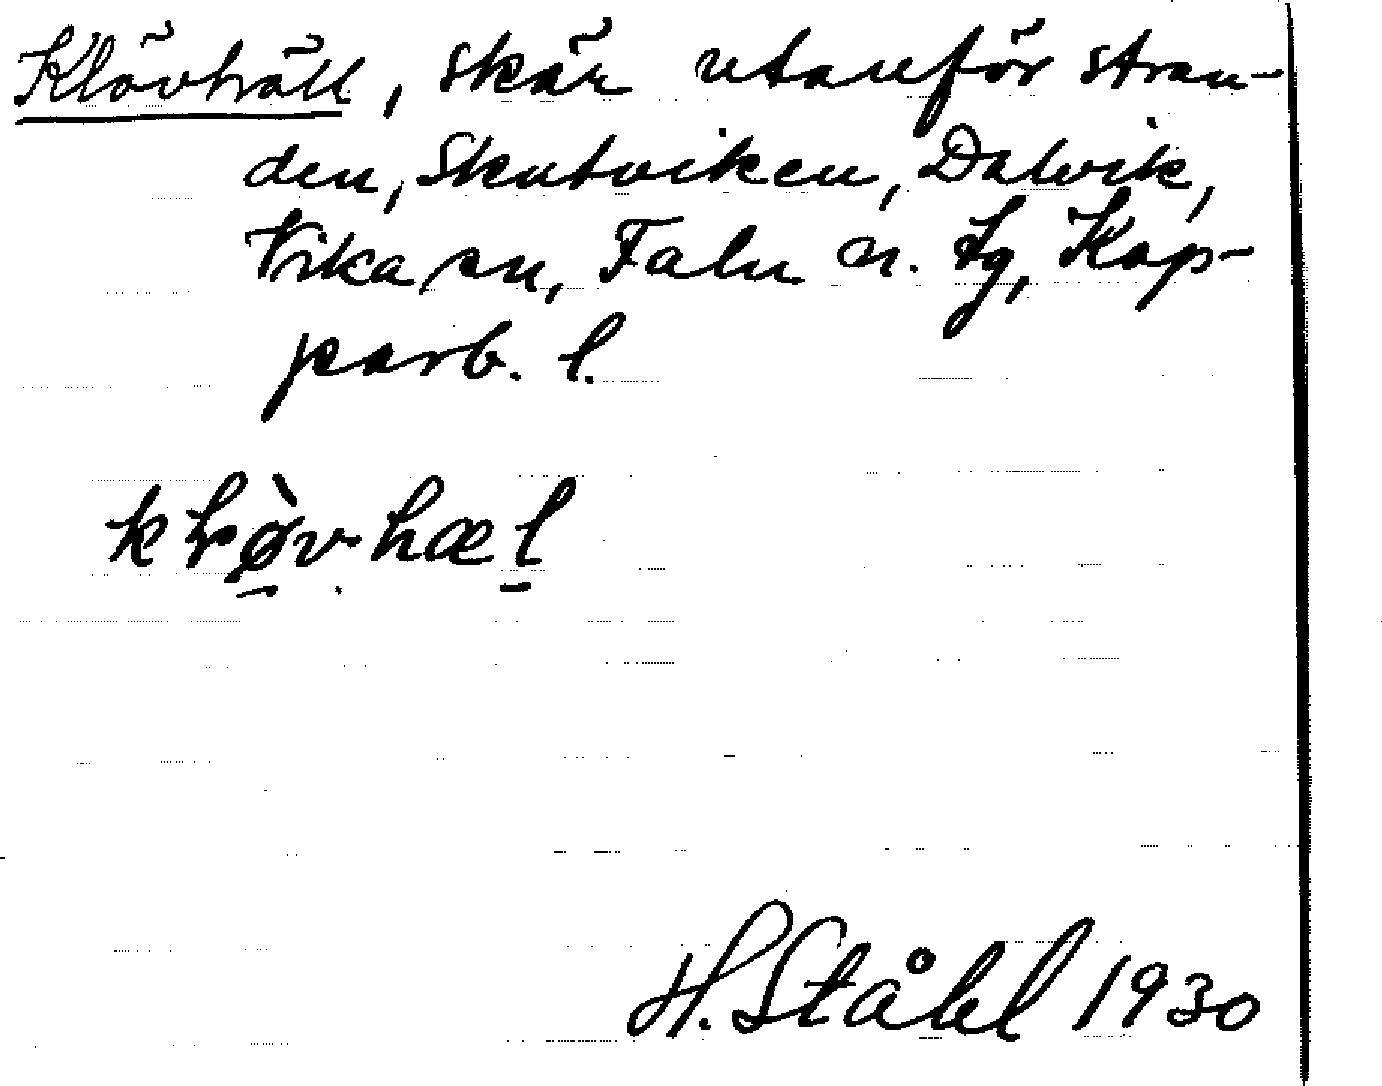 Klövhäll, skär utanför stran-
den, Skutviken, Dalvik,
Vika sn, Falu n. tg, Kop-
parb. l.
kḷø̀v hæl
H. Ståhl 1930